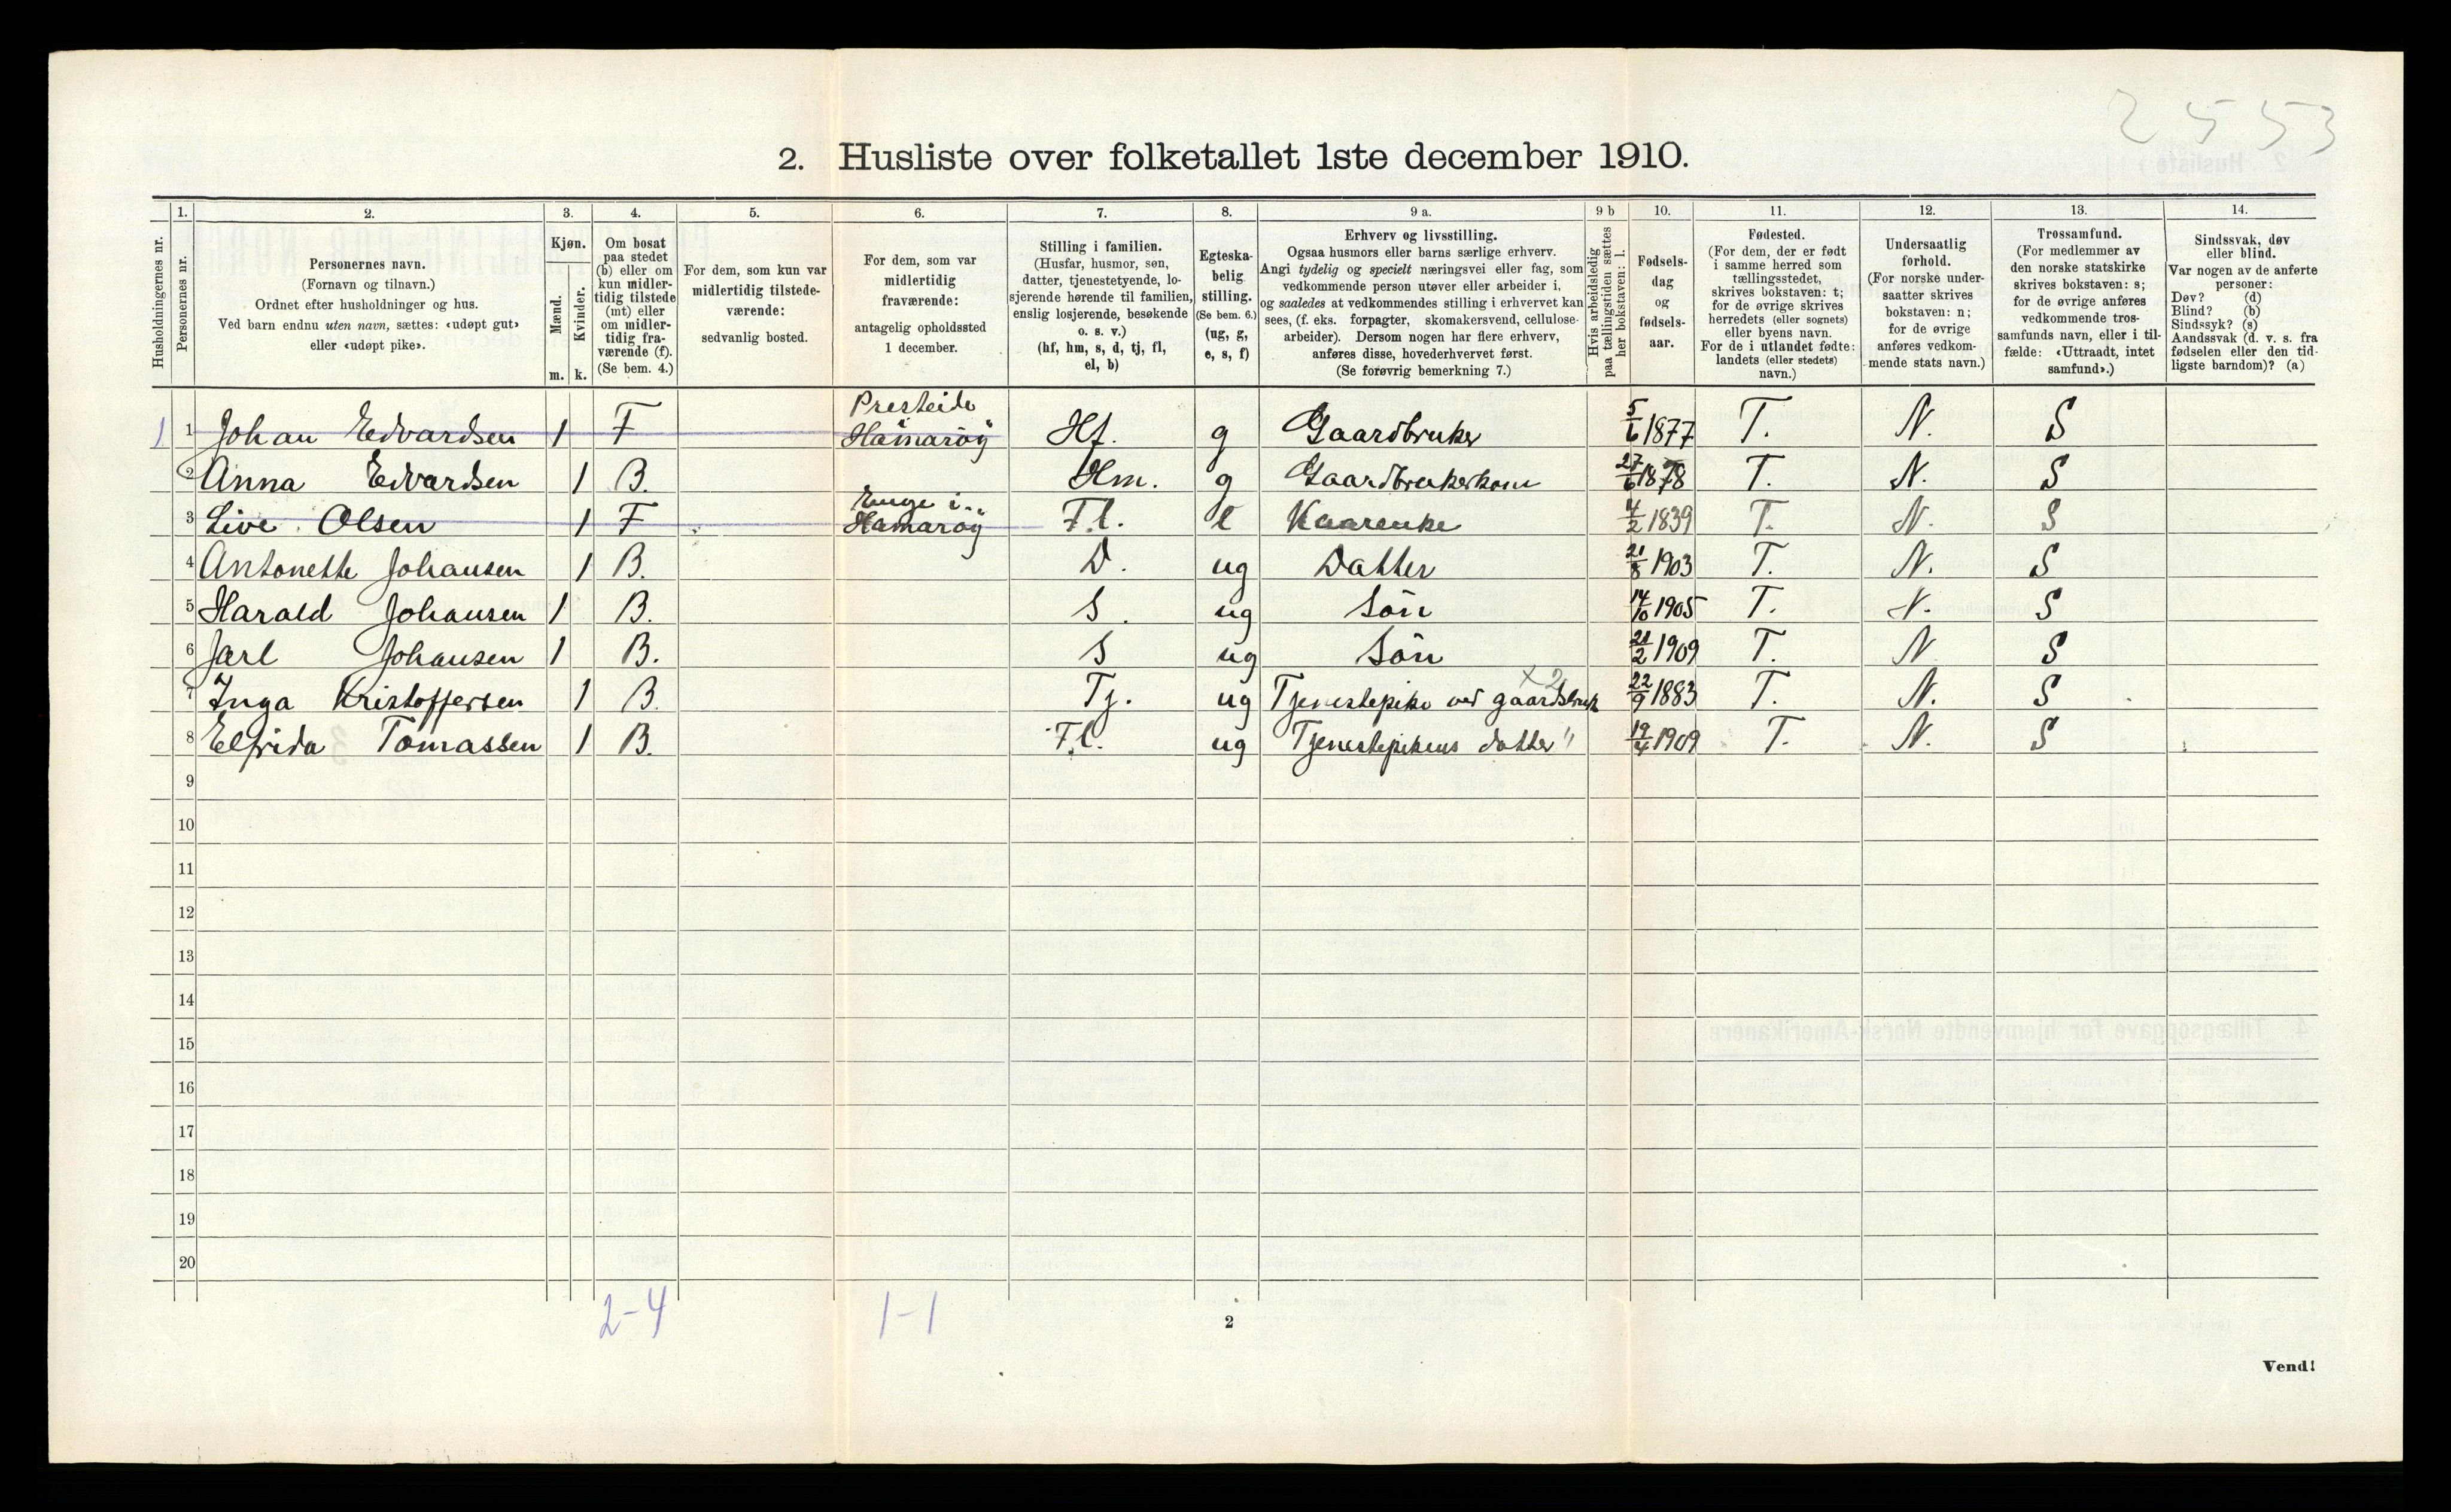 2553
2. Husliste over folketallet 1ste december 1910.
Husholdningernes nr.
1.
Personernes nr.
2.
Personernes navn.
(Fornavn og tilnavn.)
Ordnet efter husholdninger og hus.
Ved barn endnu uten navn, sættes: «udøpt gut»
eller «udøpt pike».
3.
Kjøn.
Mænd.
Kvinder.
m. k.
4.
Om bosat
paa stedet
(b) eller om
kun midler-
tidig tilstede
(mt) eller
om midler-
tidig fra-
værende (f).
(Se bem. 4.)
5.
For dem, som kun var
midlertidig tilstede-
værende:
sedvanlig bosted.
6.
For dem, som var
midlertidig
fraværende:
antagelig opholdssted
1 december.
7.
Stilling i familien.
(Husfar, husmor, søn,
datter, tjenestetyende, lo-
sjerende hørende til familien,
enslig losjerende, besøkende
o. s. v.)
(hf, hm, s, d, tj, fl,
el, b)
8.
Egteska-
belig
stilling.
(Se bem. 6.)
(ug, g,
e, s, f)
9 a.
Erhverv og livsstilling.
Ogsaa husmors eller barns særlige erhverv.
Angi tydelig og specielt næringsvei eller fag, som
vedkommende person utøver eller arbeider i,
og saaledes at vedkommendes stilling i erhvervet kan
sees, (f. eks. forpagter, skomakersvend, cellulose-
arbeider). Dersom nogen har flere erhverv,
anføres disse, hovederhvervet først.
(Se forøvrig bemerkning 7.)
9 b
Hvis arbeidsledig
paa tællingstiden sættes
her bokstaven: l.
10.
Fødsels-
dag
og
fødsels-
aar.
11.
Fødested.
(For dem, der er født
i samme herred som
tællingsstedet,
skrives bokstaven: t;
for de øvrige skrives
herredets (eller sognets)
eller byens navn.
For de i utlandet fødte:
landets (eller stedets)
navn.)
12.
Undersaatlig
forhold.
(For norske under-
saatter skrives
bokstaven: n;
for de øvrige
anføres vedkom-
mende stats navn.)
13.
Trossamfund.
(For medlemmer av
den norske statskirke
skrives bokstaven: s;
for de øvrige anføres
vedkommende tros-
samfunds navn, eller i til-
fælde: «Uttraadt, intet
samfund».)
14.
Sindssvak, døv
eller blind.
Var nogen av de anførte
personer:
Døv? (d)
Blind? (b)
Sindssyk? (s)
Aandssvak (d. v. s. fra
fødselen eller den tid-
ligste barndom)? (a)
1 1 Johan Edvardsen 1 F Presteide Hamarøy Hf. g Gaardbruker 5/6 1877 T. N. S
2 Anna Edvardsen 1 B. Hm. g Gaardbrukerkone 27/6 1878 T. N. S
3 Live Olsen 1 F Enge i Hamarøy Fl. e Kaarenke 4/2 1839 T. N. S
4 Antonette Johansen 1 B. D. ug Datter 21/8 1903 T. N. S
5 Harald Johansen 1 B. S. ug Sön 14/10 1905 T. N. S
6 Jarl Johansen 1 B. S ug Sön 21/2 1909 T. N S
7 Inga Kristoffersen 1 B. Tj. ug Tjenestepike ved gaardsbruk 22/9 1883 T. N. S
8 Elfrida Tomassen 1 B. Fl. ug Tjenestepikens datter " 19/4 1909 T. N. S
9
10
11
12
13
14
15
16
17
18
19
20
2-4 1-1
2
Vend!